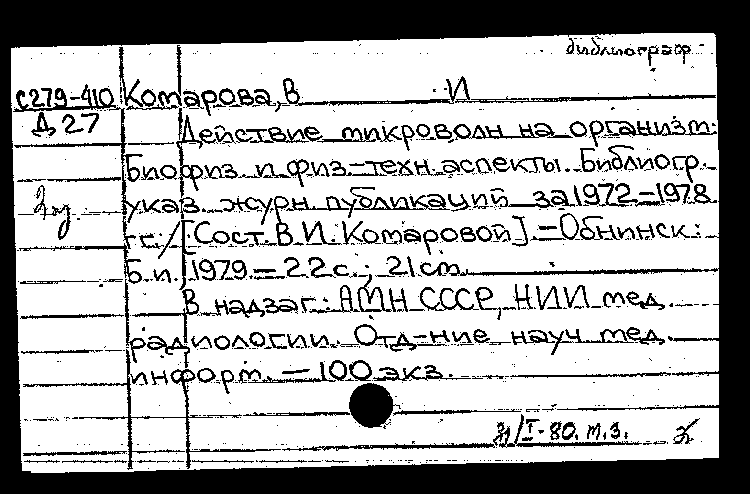 библиограф
С279-410 Комарова, В И
Д 27
Действие микроволн на организм:
Биофиз. и физ.-техн. аспекты. Библиогр.
указ. журн. публикаций за 1972-1978
гг. / [Сост. В.И. Комаровой]. - Обнинск:
Б.и., 1979 - 22 с.; 21 см.
В надзаг.: АМН СССР, НИИ мед.
радиологии. Отд-ние науч. мед.
информ. - 100 экз.
/I-80. м.з.